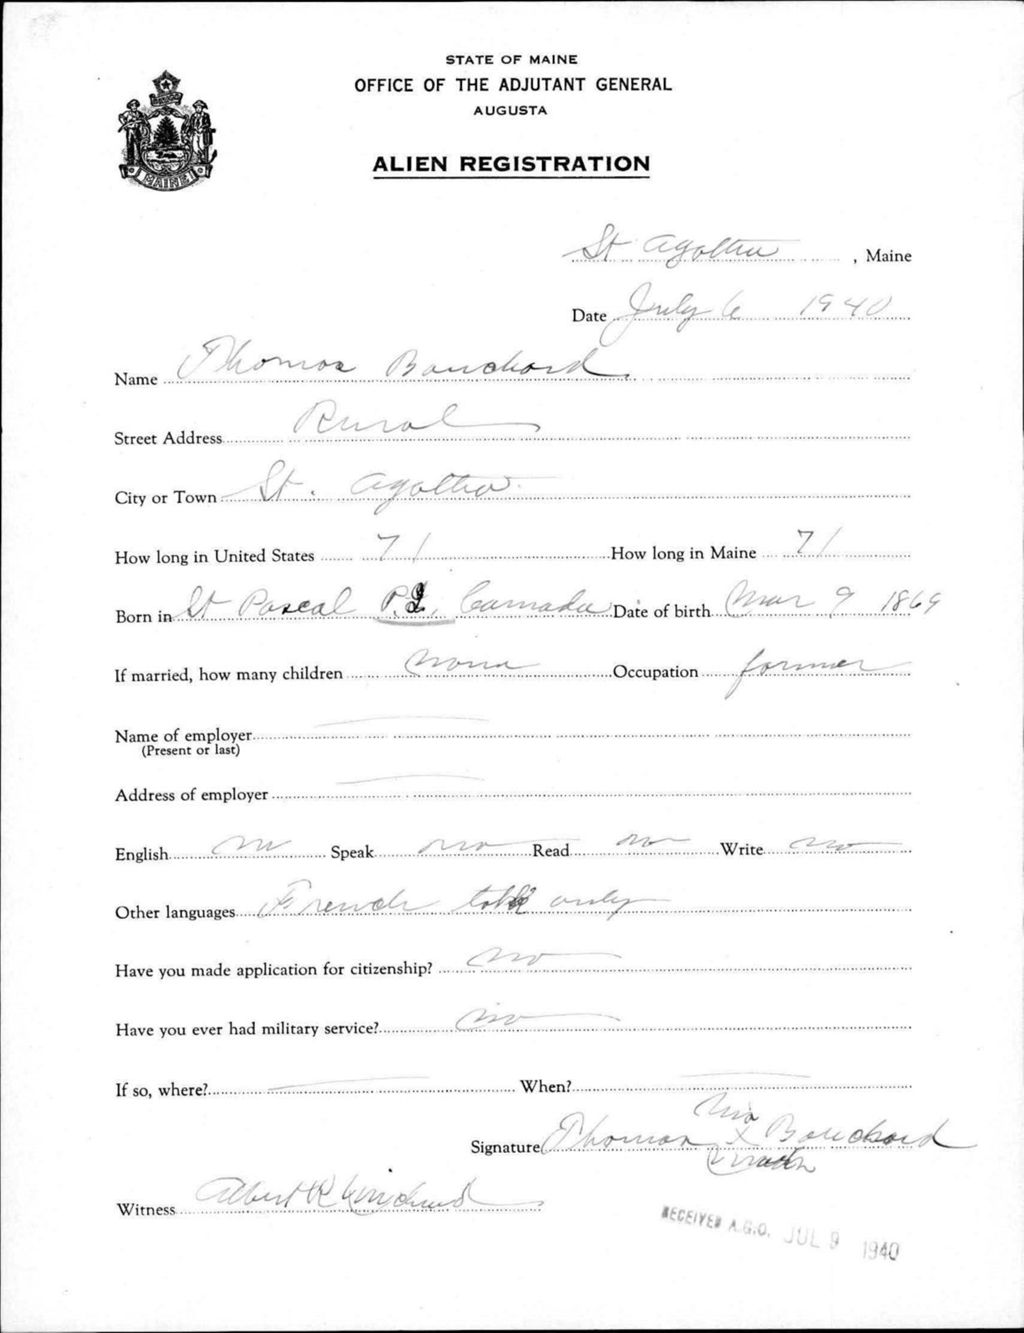 STATE OF MAINE
OFFICE OF THE ADJUTANT GENERAL
AUGUSTA
MAINE
ALIEN REGISTRATION
St Agatha, Maine
Date July 6 1940
Name Thomas Bouchard
Street Address Rural
City or Town St. Agatha
How long in United States 71 How long in Maine 71
Born in St Pascal P.Q. Canada Date of birth Mar 9 1869
If married, how many children None Occupation farmer
Name of employer
(Present or last)
Address of employer
English no Speak no Read no Write no
Other languages French talk only
Have you made application for citizenship? no
Have you ever had military service? no
If so, where? When?
his
Signature Thomas X Bouchard
mark
Witness Albert R
RECEIVED A.G.O. JUL 9 1940